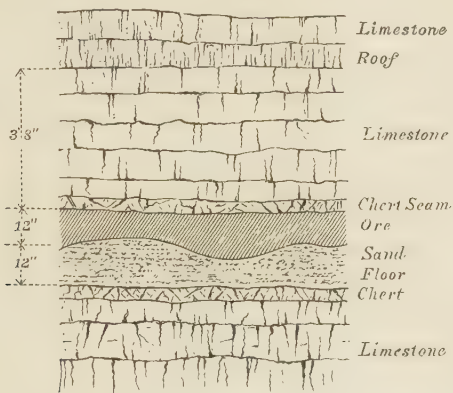 Limestone
Roof
3' 8"
Limestone
Chert Seam
12"
Ore
Sand
12"
Floor
Chert
Limestone